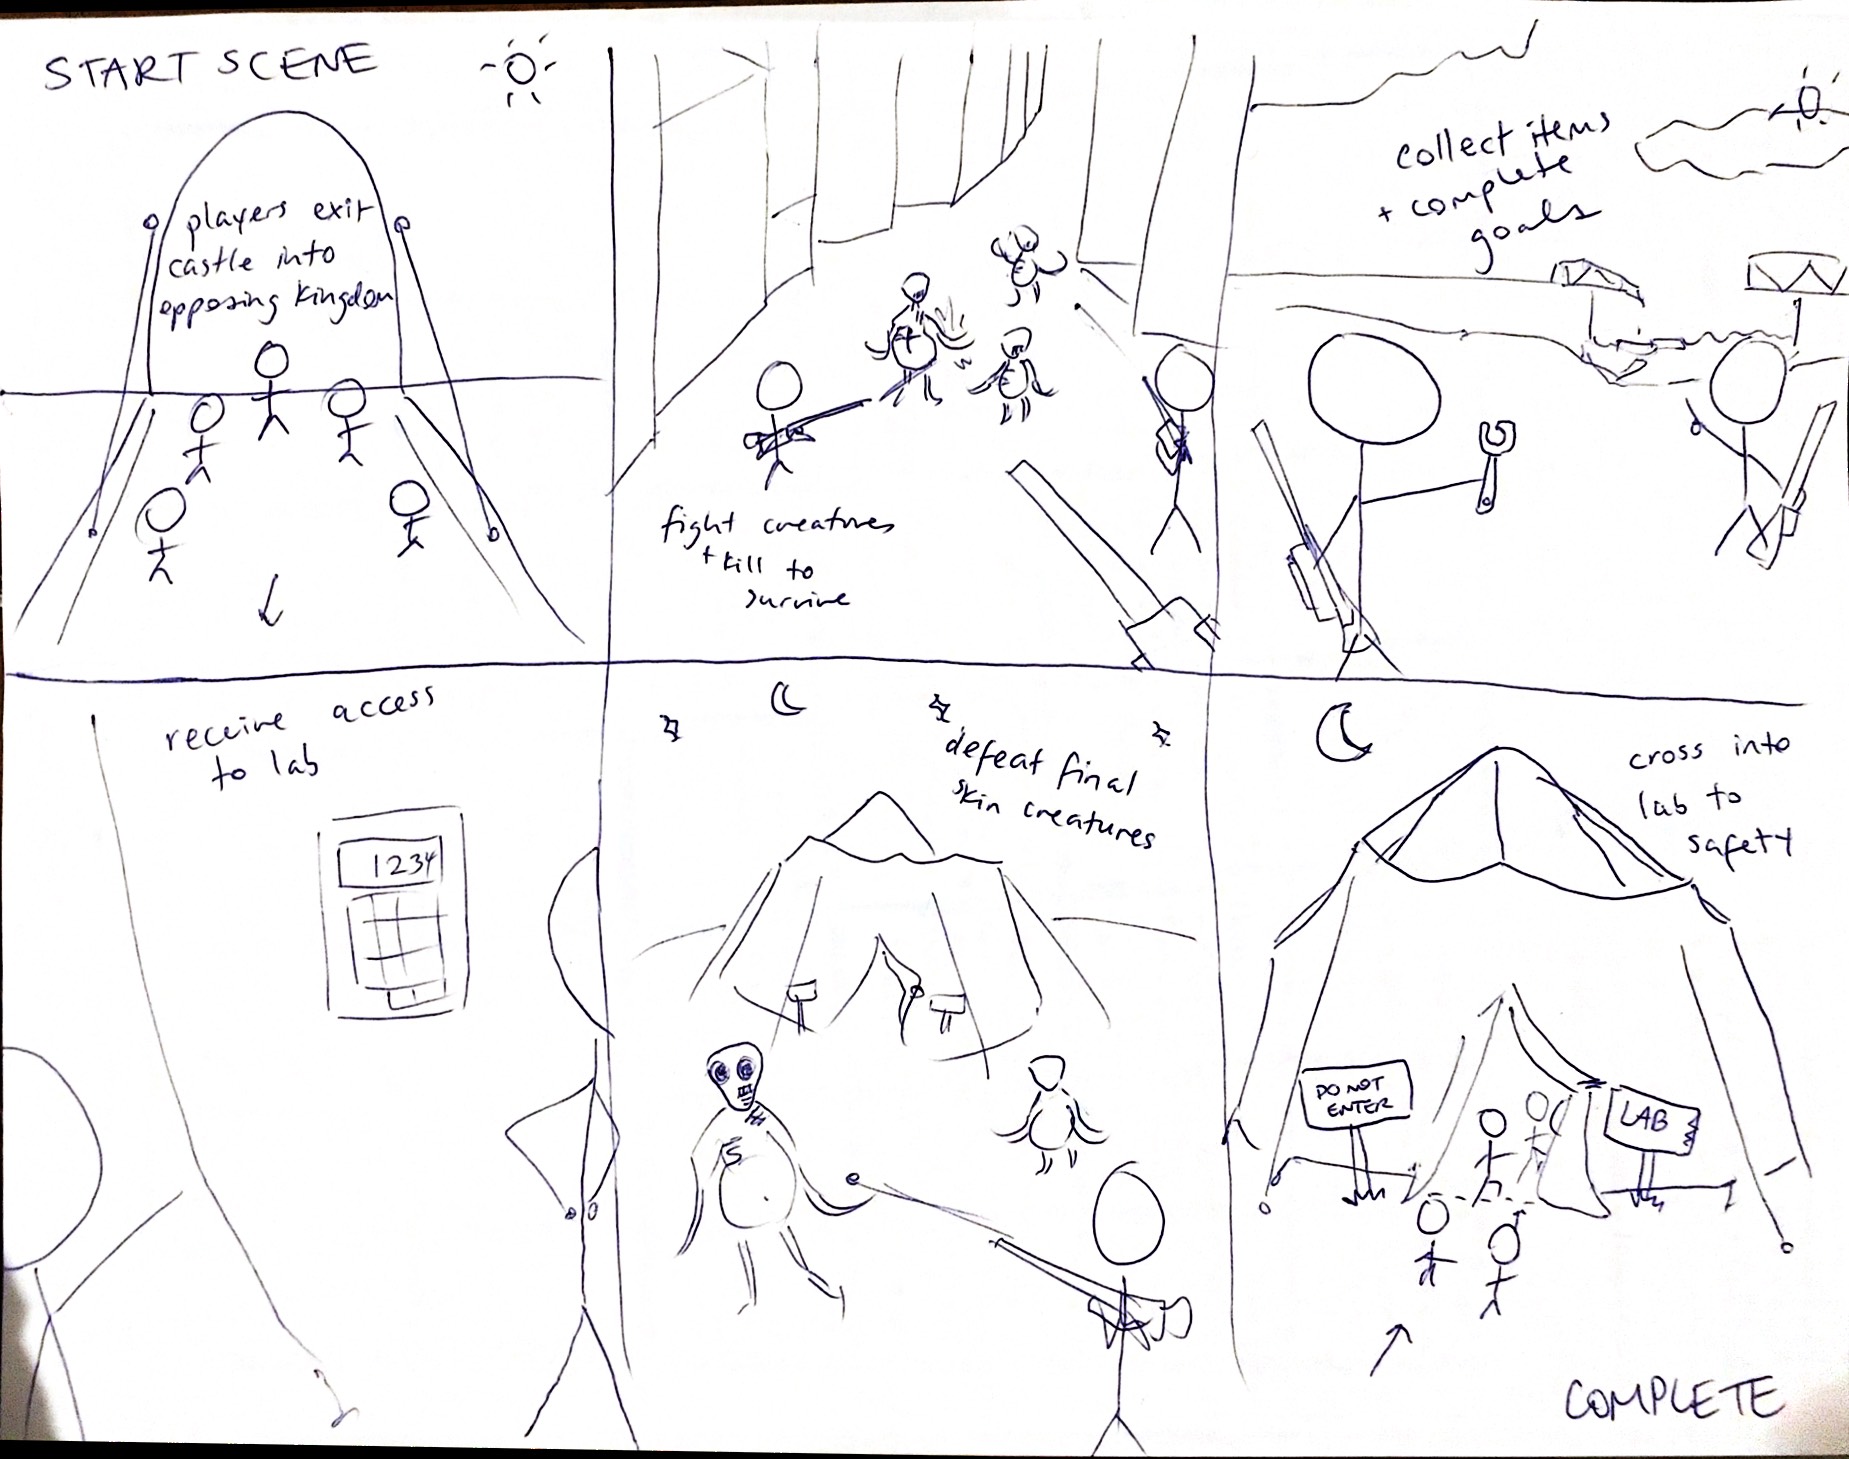 START SCENE
players exit
castle into
opposing kingdom
fight creatures
+ kill to
survive
collect items
+ complete
goals
receive access
to lab
1234
defeat final
skin creatures
S
cross into
lab to
safety
DO NOT
ENTER
LAB
COMPLETE